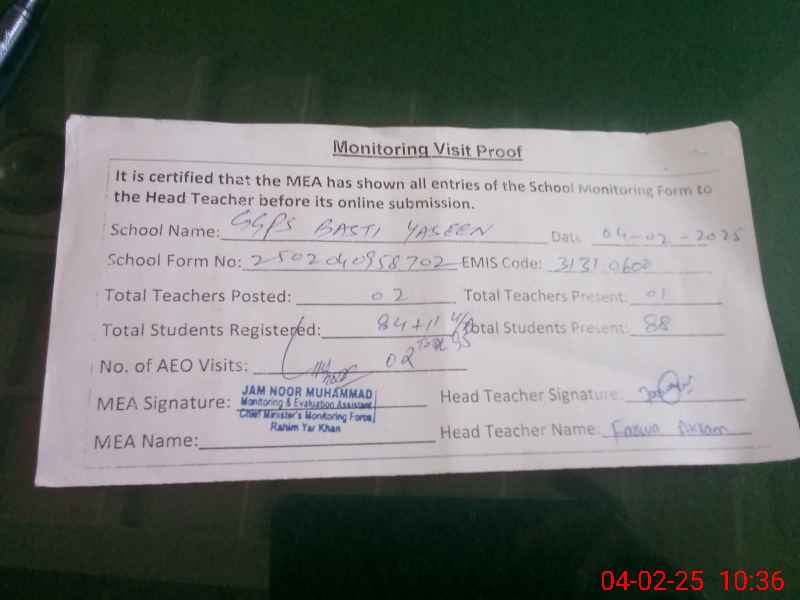 Monitoring Visit Proof
It is certified that the MEA has shown all entries of the School Monitoring Form to
the Head Teacher before its online submission.
School Name: GGPS BASTI YASEEN Date 04-02-2025
School Form No: 2502040958702 EMIS Code: 31310600
Total Teachers Posted: 02 Total Teachers Present: 01
Total Students Registered: 84+11 Total 95 Total Students Present: 88
No. of AEO Visits: 02
MEA Signature: JAM NOOR MUHAMMAD Head Teacher Signature:
Monitoring & Evaluation Assistant
Chief Minister's Monitoring Force
Rahim Yar Khan
MEA Name: Head Teacher Name:
04-02-25 10:36